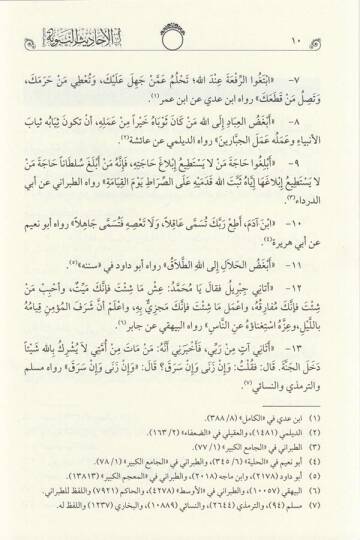 ١٠ الأحاديث النبوية
٧- «ابْتَغُوا الرِّفْعَةَ عِنْدَ الله؛ تَحْلُمُ عَمَّنْ جَهِلَ عَلَيْكَ، وَتُعْطِي مَنْ حَرَمَكَ،
وَتَصِلُ مَنْ قَطَعَكَ» رواه ابن عدي عن ابن عمر(١).
٨- «أَبْغَضُ العِبَادِ إِلَى اللهِ مَنْ كَانَ ثَوْبَاهُ خَيْراً مِنْ عَمَلِهِ، أَنْ تَكُونَ ثِيَابُهُ ثيابَ
الأنبياءِ وعَمَلُه عَمَلَ الجبَّارينَ» رواه الديلمي عن عائشة(٢).
٩- «أَبْلِغُوا حَاجَةَ مَنْ لا يَسْتَطِيعُ إِبْلاغَ حَاجَتِهِ، فَإِنَّهُ مَنْ أَبْلَغَ سُلطَاناً حَاجَةَ مَنْ
لا يَسْتَطِيعُ إِبلاغَها إِيَّاهُ ثَبَّتَ الله قَدَمَيْهِ عَلَى الصِّرَاطِ يَوْمَ القِيَامَةِ» رواه الطبراني عن أبي
الدرداء(٣).
١٠- «ابْنَ آدَمَ، أَطِعْ رَبَّكَ تُسَمَّى عَاقِلاً، وَلَا تَعْصِهِ فَتُسَمَّى جَاهِلاً» رواه أبو نعيم
عن أبي هريرة(٤).
١١- «أَبْغَضُ الحَلالِ إِلى اللهِ الطَّلاقُ» رواه أبو داود في «سننه»(٥).
١٢- «أَتَاني جِبْرِيلُ فقالَ يَا مُحَمَّدُ: عِشْ مَا شِئْتَ فإنَّكَ مَيِّتٌ، وَأَحْبِبْ مَنْ
شِئْتَ فإنَّكَ مُفَارِقُهُ، وَاعْمَل مَا شِئْتَ فإنَّكَ مَجْزِيٌّ بِهِ، وَاعْلَمْ أنَّ شَرَفَ المُؤْمِنِ قِيَامُهُ
بِاللَّيْلِ، وعِزَّهُ اسْتِغْنَاؤهُ عنِ النَّاسِ» رواه البيهقي عن جابر(٦).
١٣- «أَتَانِي آتٍ مِنْ رَبِّي، فَأَخْبَرَنِي أَنَّهُ: مَنْ مَاتَ مِنْ أُمَّتِي لَا يُشْرِكُ بِالله شَيْئاً
دَخَلَ الجَنَّةَ. قال: فقُلْتُ: وَإِنْ زَنَى وَإِنْ سَرَقَ؟ قَالَ: «وَإِنْ زَنَى وَإِنْ سَرَقَ» رواه مسلم
والترمذي والنسائي(٧).
(١) ابن عدي في «الكامل» (٨/ ٣٨٨).
(٢) الديلمي (١٤٨١)، والعقيلي في «الضعفاء» (٢/ ١٦٣).
(٣) الطبراني في «الجامع الكبير» (١/ ٧٧).
(٤) أبو نعيم في «الحلية» (٦/ ٣٤٥)، والطبراني في «الجامع الكبير» (١/ ٧٨).
(٥) أبو داود (٢١٧٨)، وابن ماجه (٢٠١٨)، والطبراني في «المعجم الكبير» (١٣٨١٣).
(٦) البيهقي (١٠٠٥٧)، والطبراني في «الأوسط» (٤٢٧٨)، والحاكم (٧٩٢١) واللفظ للطبراني.
(٧) مسلم (٩٤)، والترمذي (٢٦٤٤)، والنسائي (١٠٨٨٩)، والبخاري (١٢٣٧) واللفظ له.